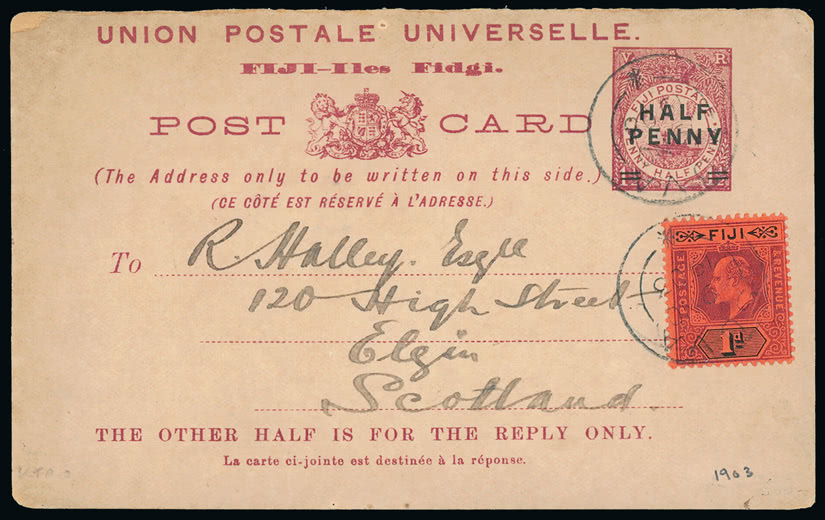 UNION POSTALE UNIVERSELLE.
FIJI—Iles Fidgi.
POST CARD
V R
FIJI POSTAGE
HALF
PENNY
PENNY HALF PENNY
(The Address only to be written on this side.)
(CE CÔTÉ EST RÉSERVÉ À L'ADRESSE.)
To R. Halley. Esqre
120 High Street
Elgin
Scotland.
FIJI
POSTAGE
& REVENUE
1d
THE OTHER HALF IS FOR THE REPLY ONLY.
La carte ci-jointe est destinée à la réponse.
1903